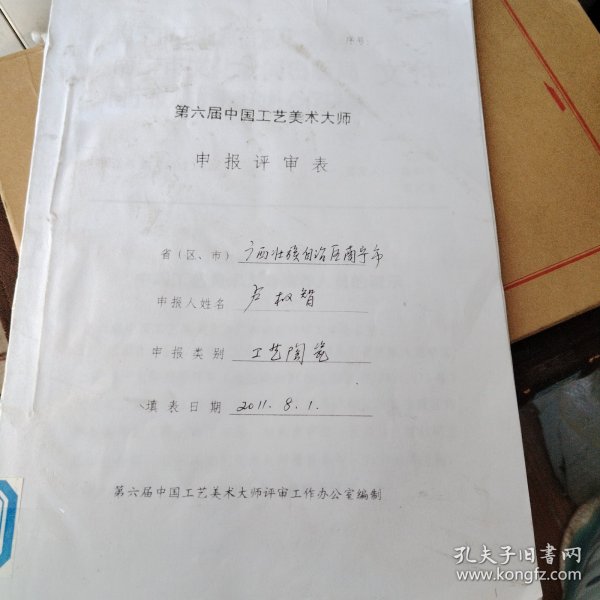 序号
第六届中国工艺美术大师
申报评审表
省(区、市) 广西壮族自治区南宁市
申报人姓名 卢权智
申报类别 工艺陶瓷
填表日期 2011.8.1.
第六届中国工艺美术大师评审工作办公室编制
孔夫子旧书网
www.kongfz.com